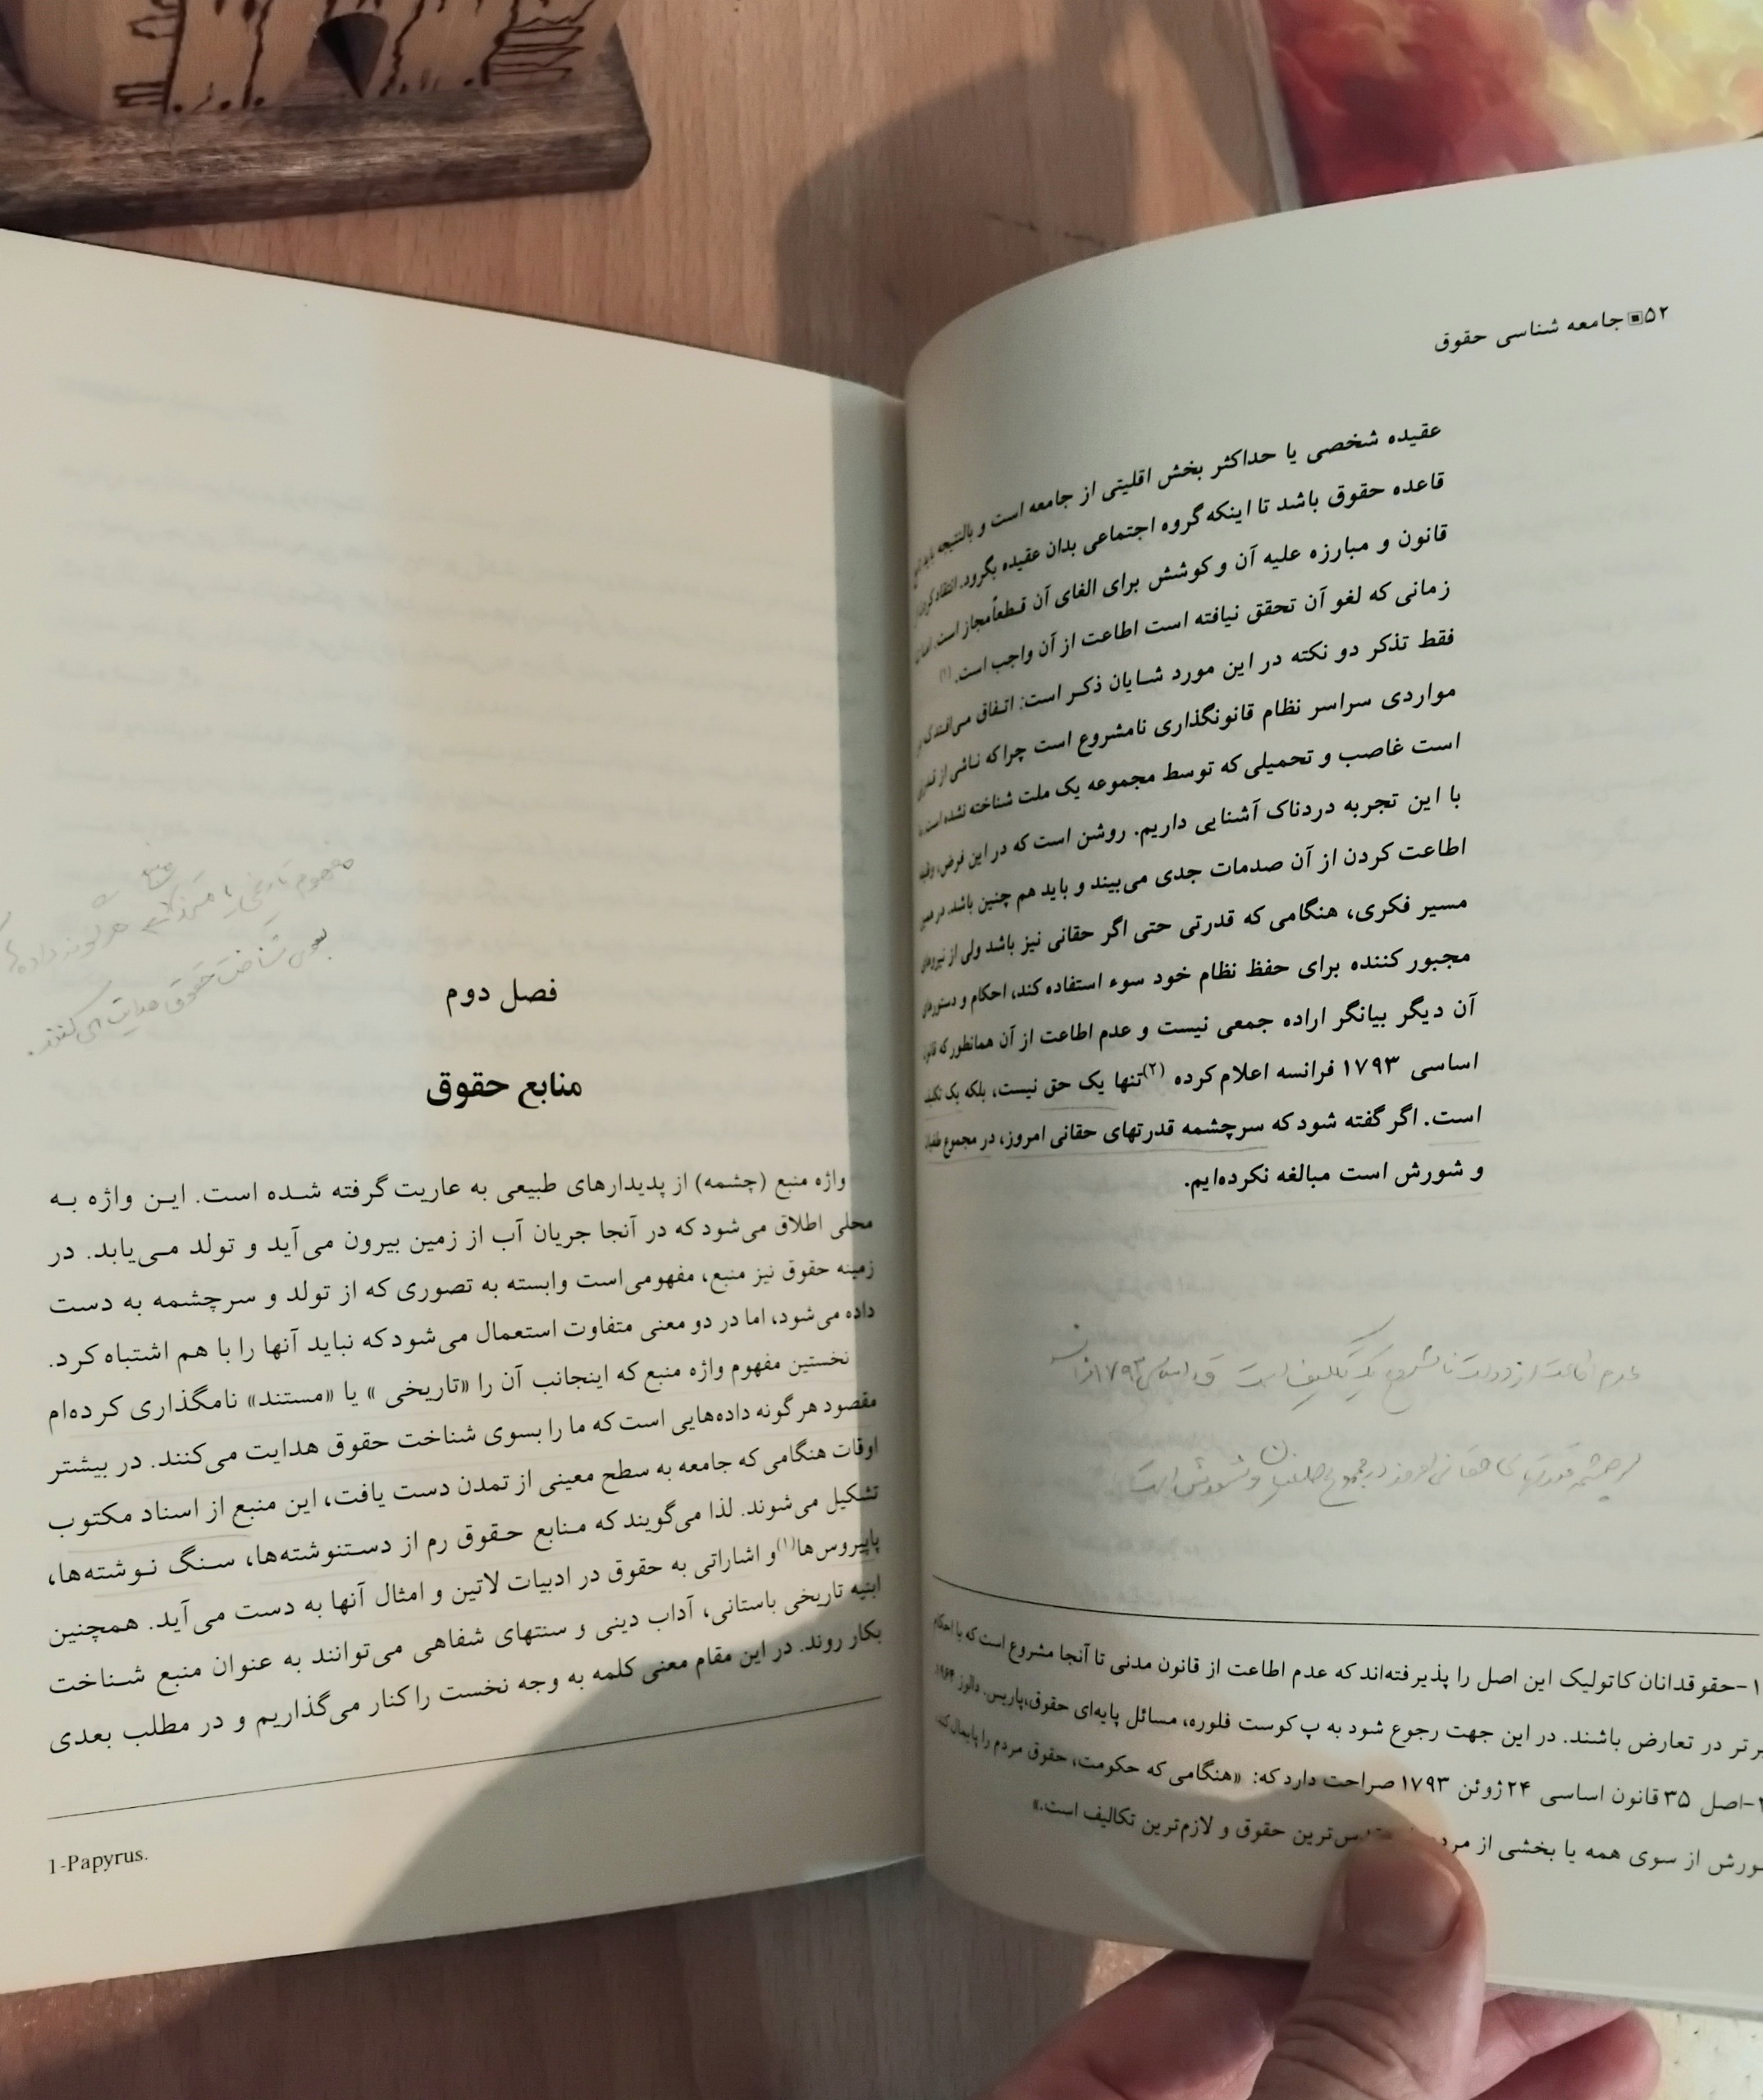 ۵۲ ▣ جامعه شناسی حقوق
عقیده شخصی یا حداکثر بخش اقلیتی از جامعه است و بالنتیجه باید تابع
قاعده حقوق باشد تا اینکه گروه اجتماعی بدان عقیده بگرود. انتقاد کردن از
قانون و مبارزه علیه آن و کوشش برای الغای آن قطعاً مجاز است. اما تا
زمانی که لغو آن تحقق نیافته است اطاعت از آن واجب است. (۱)
فقط تذکر دو نکته در این مورد شایان ذکر است: اتفاق می‌افتد که در
مواردی سراسر نظام قانونگذاری نامشروع است چرا که ناشی از قدرتی
است غاصب و تحمیلی که توسط مجموعه یک ملت شناخته نشده است.
با این تجربه دردناک آشنایی داریم. روشن است که در این فرض، وظیفه
اطاعت کردن از آن صدمات جدی می‌بیند و باید هم چنین باشد. در همین
مسیر فکری، هنگامی که قدرتی حتی اگر حقانی نیز باشد ولی از نیروهای
مجبور کننده برای حفظ نظام خود سوء استفاده کند، احکام و دستورهای
آن دیگر بیانگر اراده جمعی نیست و عدم اطاعت از آن همانطور که قانون
اساسی ۱۷۹۳ فرانسه اعلام کرده (۲) تنها یک حق نیست، بلکه یک تکلیف
است. اگر گفته شود که سرچشمه قدرتهای حقانی امروز، در مجموع طغیان
و شورش است مبالغه نکرده‌ایم.
عدم اطاعت از دولت نامشروع یک تکلیف است ق اساسی ۱۷۹۳ فرانسه
سرچشمه قدرتهای حقانی امروز در مجموع طغیان و شورش است
۱-حقوقدانان کاتولیک این اصل را پذیرفته‌اند که عدم اطاعت از قانون مدنی تا آنجا مشروع است که با احکام
برتر در تعارض باشند. در این جهت رجوع شود به پ کوست فلوره، مسائل پایه‌ای حقوق،پاریس. دالوز ۱۹۴۶
۲-اصل ۳۵ قانون اساسی ۲۴ ژوئن ۱۷۹۳ صراحت دارد که: «هنگامی که حکومت، حقوق مردم را پایمال کند،
شورش از سوی همه یا بخشی از ترین حقوق و لازم‌ترین تکالیف است.»
مفهوم تاریخی یا مستند منبع هرگونه داده‌هایی
بسوی شناخت حقوق هدایت می‌کنند.
فصل دوم
منابع حقوق
واژه منبع (چشمه) از پدیدارهای طبیعی به عاریت گرفته شده است. این واژه به
محلی اطلاق می‌شود که در آنجا جریان آب از زمین بیرون می‌آید و تولد می‌یابد. در
زمینه حقوق نیز منبع، مفهومی‌است وابسته به تصوری که از تولد و سرچشمه به دست
داده می‌شود، اما در دو معنی متفاوت استعمال می‌شود که نباید آنها را با هم اشتباه کرد.
نخستین مفهوم واژه منبع که اینجانب آن را «تاریخی » یا «مستند» نامگذاری کرده‌ام
مقصود هر گونه داده‌هایی است که ما را بسوی شناخت حقوق هدایت می‌کنند. در بیشتر
اوقات هنگامی که جامعه به سطح معینی از تمدن دست یافت، این منبع از اسناد مکتوب
تشکیل می‌شوند. لذا می‌گویند که منابع حقوق رم از دستنوشته‌ها، سنگ نوشته‌ها،
پاپیروس‌ها(۱) و اشاراتی به حقوق در ادبیات لاتین و امثال آنها به دست می‌آید. همچنین
ابنیه تاریخی باستانی، آداب دینی و سنتهای شفاهی می‌توانند به عنوان منبع شناخت
بکار روند. در این مقام معنی کلمه به وجه نخست را کنار می‌گذاریم و در مطلب بعدی
1-Papyrus.